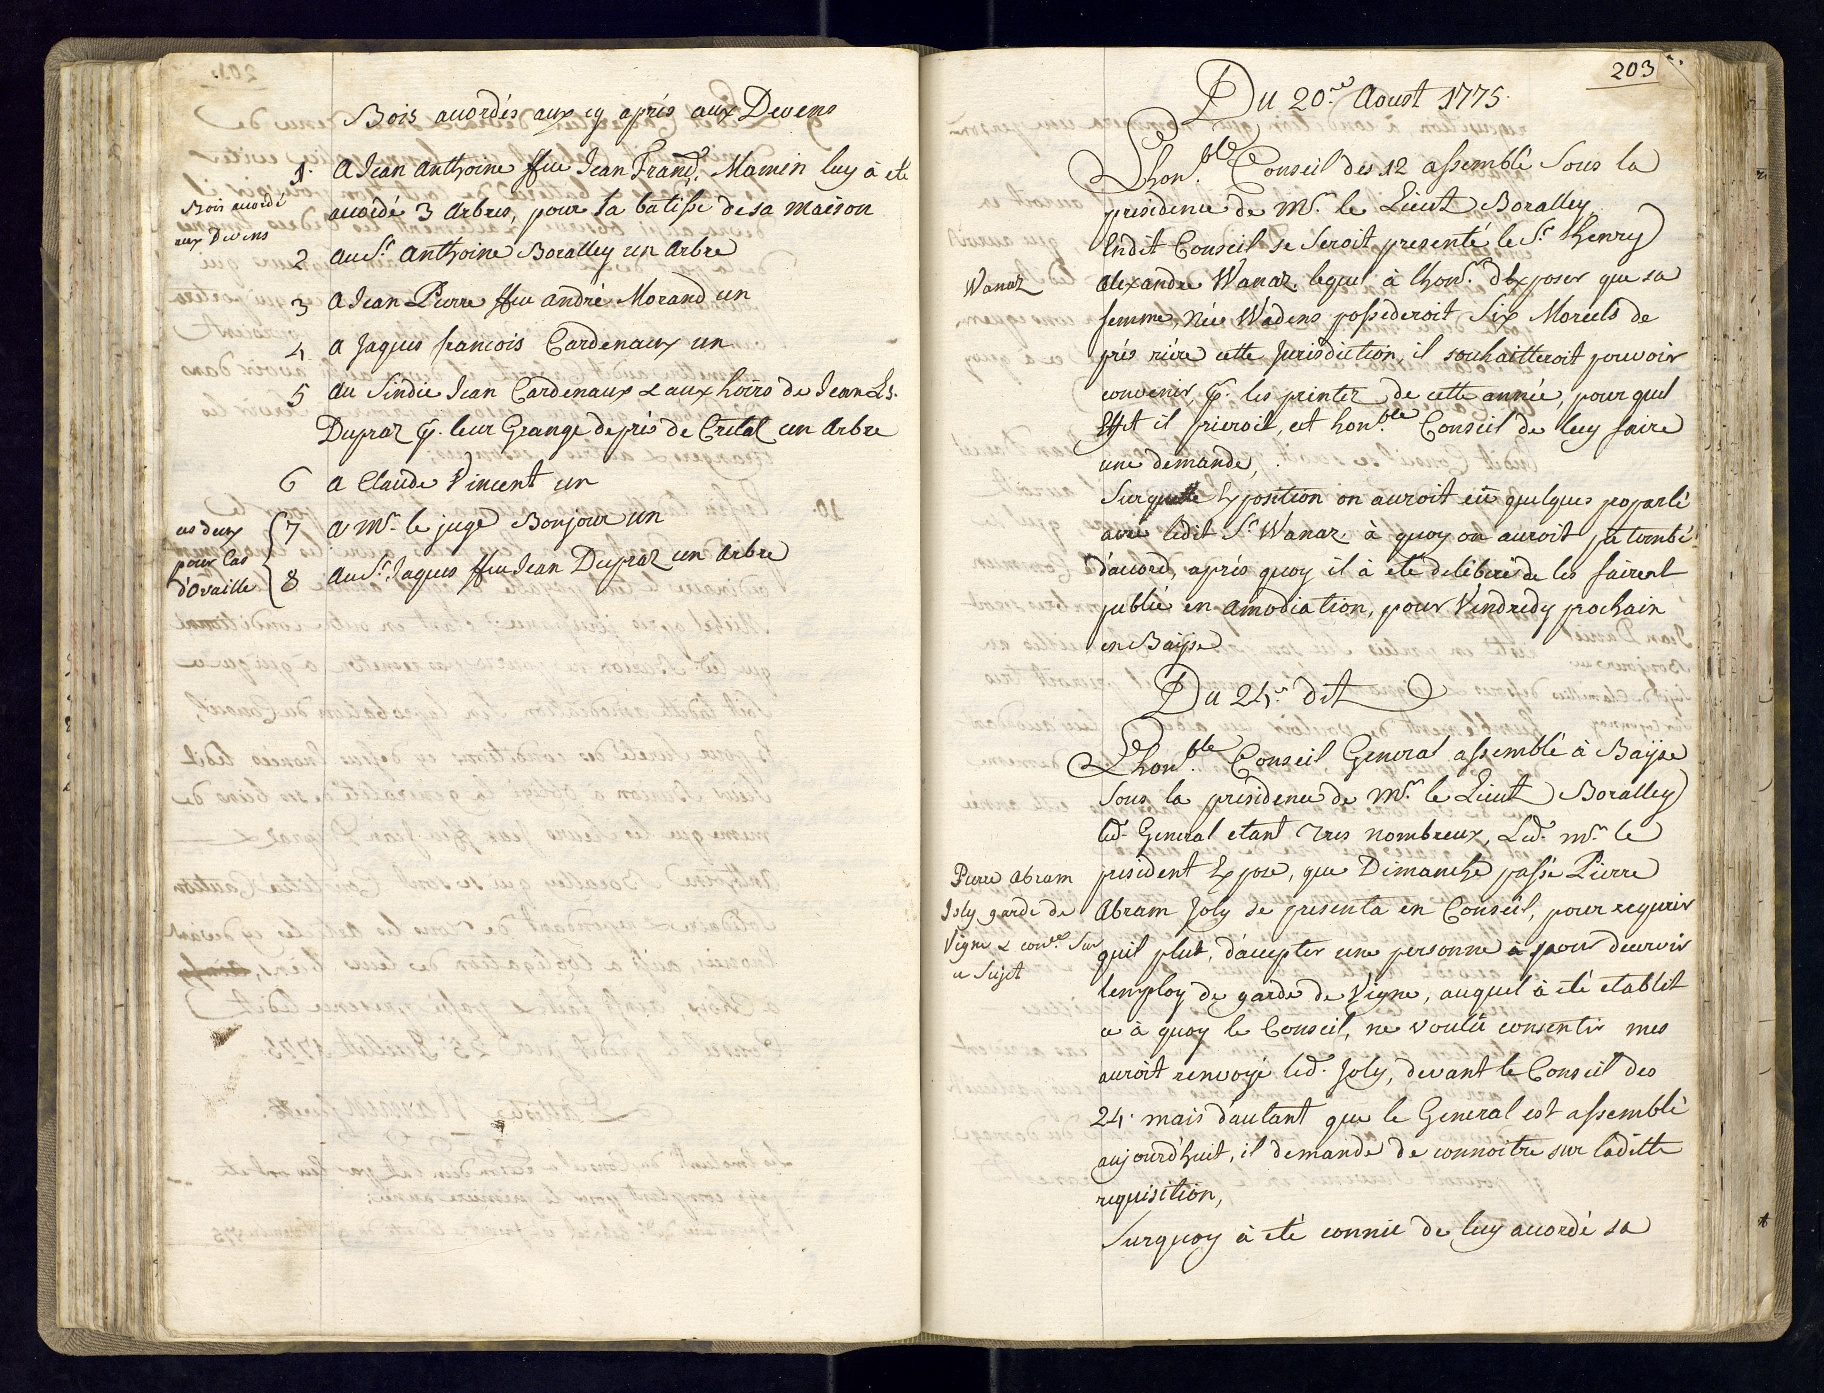 Bois acordés aux cy aprés aux Devens
1. A Jean Anthoine ffeu Jean Frand. Mamin luy à eté
Bois acordé
aux Devens
acordé 3 Arbres, pour la batisse de sa maison
2 au Sr. Anthoine Boralley un Arbre
3 A Jean Pierre ffeu André Morand un
4 a Jaques francois Cardenaux un
5 Au Sindic Jean Cardenaux & aux hoirs de Jean Ls.
Dupraz p. leur Grange de prés de Crétel un Arbre
6 a Claude Vincent un
ces deux
pour las
d'Ovaille
7 a Mr. le juge Bonjour un
8 au Sr. Jaques ffeu Jean Dupraz un Arbre
203
Du 20.me Aoust 1775.
Lhon.ble Conseil des 12 assemblé sous la
presidence de Mr. le Lieut Boralley
Endit Conseil se seroit presenté le Sr. Henry
Wanaz
Alexandre Wanaz, lequel à lhonr. d'Exposer que sa
femme, Née Wadens possederoit Six Morcels de
prés riére cette Jurisdiction, il souhaitteroit pouvoir
convenir, p. les printer de cette année, pour quel
Effet il prieroit, cet hon.ble Conseil de luy faire
une demande,
Surquelle Exposition on auroit eü quelques poparlé
avec ledit Sr. Wanaz, à quoy on auroit pû tombé
d'acord, aprés quoy il à eté deliberé de les fairent
publié en amodiation, pour Vendredy prochain
en Baÿse
Du 24.e dit
Lhon.ble Conseil General assemblé à Baÿse
Sous la presidence de Mr. le Lieut Boralley
led. General etant Tres nombreux, Led. mr. le
Pierre Abram
Joly garde de
Vigne & con.ce Sur
ce Sujet
president Expose, que Dimanche passé Pierre
Abram Joly se presenta en Conseil, pour requerir
quil plut, d'accepter une personne à pour decervir
lemploy de garde de Vigne, auquel à eté etablit
ce à quoy le Conseil, ne voulû consentir mes
auroit renvoyé led. Joly, devant le Conseil des
24. mais d'autant que le General est assemblé
aujourd'huit, il demande de connoitre sur laditte
requisition,
Surquoy à eté connue de luy acordé sa